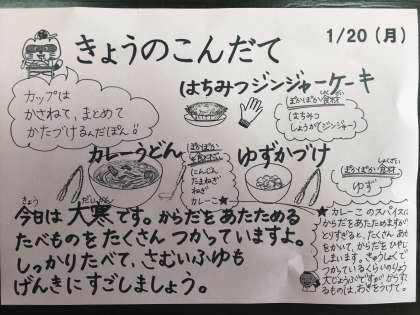 きょうのこんだて
1/20(月)
はちみつジンジャーケーキ
カップは
かさねて、まとめて
かたづけるんだぽん!!
ぽかぽか食材
はちみつ
しょうが(ジンジャー)
カレーうどん
ぽかぽか
食材
にんじん
たまねぎ
ねぎ
カレーこ★
ゆずかづけ
ぽかぽか食材
ゆず
きょう だいかん
今日は 大寒です。からだを あたためる
たべものを たくさん つかっていますよ。
しっかりたべて、さむいふゆも
げんきに すごしましょう。
★カレーこ のスパイスは
からだをあたためますが
とりすぎると、たくさん あせ
をかいて、からだを ひやし
てしまいます。きゅうしょくで
つかっているくらいのりょう